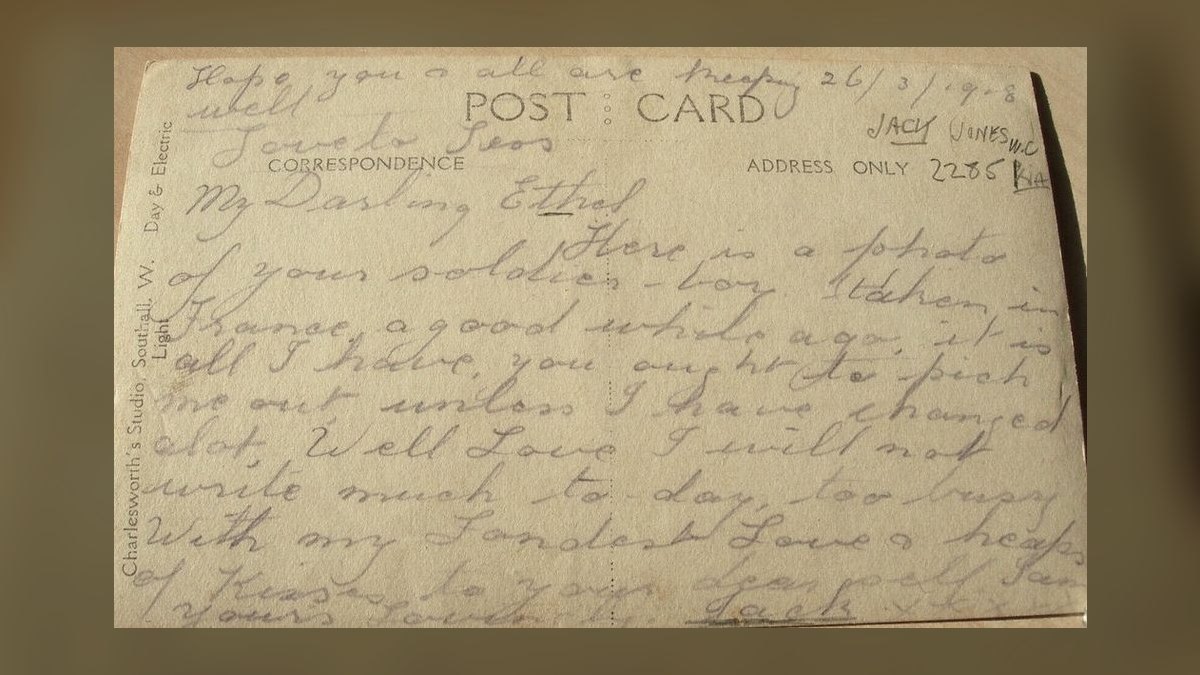 Hope you & all are keeping 26/3/1918
well
POST CARD
Love to Leos
JACK JONES
CORRESPONDENCE
ADDRESS ONLY 2285 KIA
My Darling Ethel
Here is a photo
of your soldier boy. taken in
France, a good while ago, it is
all I have, you ought to pick
me out unless I have changed
alot. Well Love I will not
write much to-day, too busy
With my Fondest Love & heaps
of Kisses to your dear self I am
yours lovingly. Jack xxx
Charlesworth's Studio, Southall, W. Day & Electric
Light